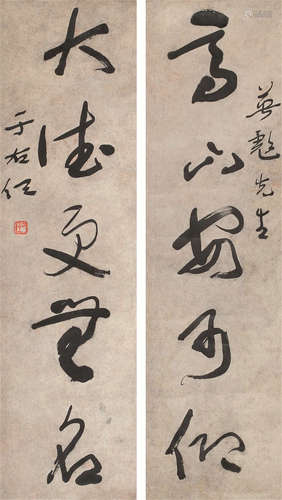 高山安可仰
英彪先生
大德更無名
于右任